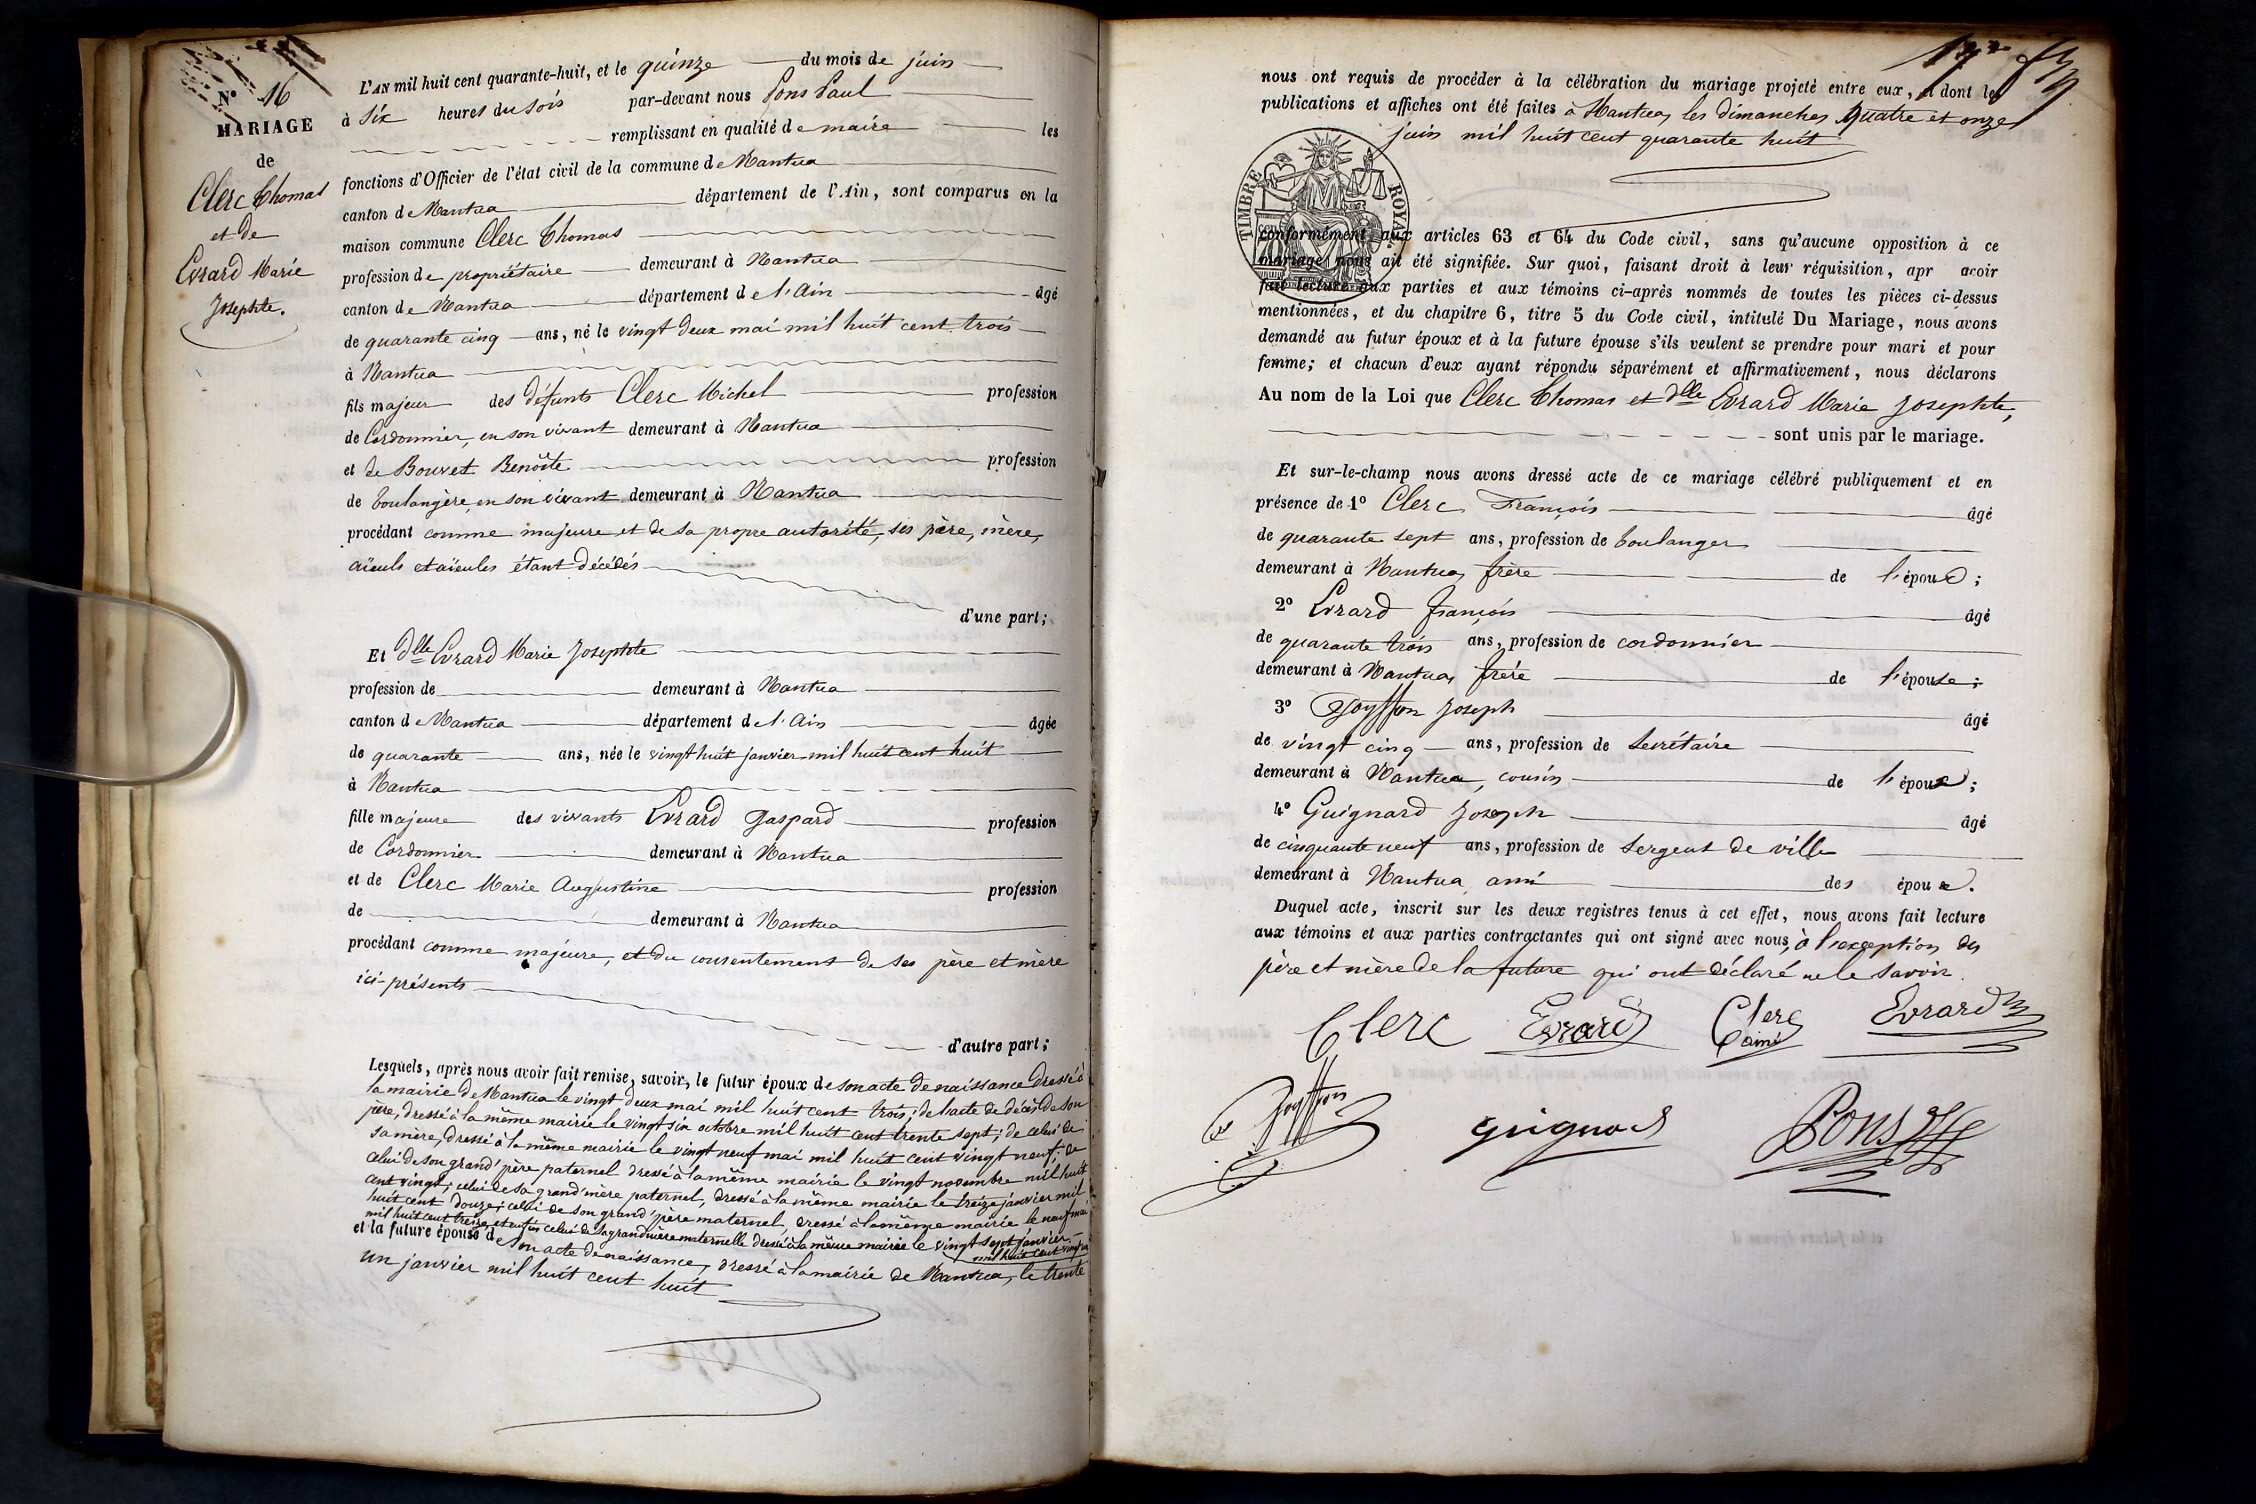 N° 16
MARIAGE
de
Clerc Thomas
et de
Evrard Marie
Josephte.
L'AN mil huit cent quarante-huit, et le quinze du mois de juin
à six heures du soir par-devant nous Pons Paul
remplissant en qualité de maire les
fonctions d'Officier de l'état civil de la commune de Nantua
canton de Nantua département de l'Ain, sont comparus en la
maison commune Clerc Thomas
profession de propriétaire demeurant à Nantua
canton de Nantua département de l'Ain âgé
de quarante cinq ans, né le vingt deux mai mil huit cent trois
à Nantua
fils majeur des défunts Clerc Michel profession
de Cordonnier, en son vivant demeurant à Nantua
et de Bouvet Benoîte profession
de boulangère, en son vivant demeurant à Nantua
procédant comme majeure et de sa propre autorité, ses père, mère,
aïeuls et aïeules étant décédés
d'une part;
Et dlle Evrard Marie Josephte
profession de demeurant à Nantua
canton de Nantua département de l'Ain âgée
de quarante ans, née le vingt huit janvier mil huit cent huit
à Nantua
fille majeure des vivants Evrard Gaspard profession
de Cordonnier demeurant à Nantua
et de Clerc Marie Augustine profession
de demeurant à Nantua
procédant comme majeure, et du consentement de ses père et mère
ici-présents
d'autre part;
Lesquels, après nous avoir fait remise, savoir, le futur époux de son acte de naissance dressé à
la mairie de Nantua le vingt deux mai mil huit cent trois; de l'acte de décès de son
père, dressé à la même mairie le vingt six octobre mil huit cent trente sept; de celui de
sa mère, dressé à la même mairie le vingt neuf mai mil huit cent vingt neuf; de
celui de son grand'père paternel dressé à la même mairie le vingt novembre mil huit
cent vingt; celui de sa grand'mère paternel, dressé à la même mairie le treize janvier mil
huit cent douze; celui de son grand'père maternel, dressé à la même mairie le neuf mai
mil huit cent treize, et enfin celui de sa grand'mère maternelle dressé à la même mairie le vingt sept janvier
mil huit cent vingt
et la future épouse de son acte de naissance, dressé à la mairie de Nantua, le trente
un janvier mil huit cent huit
nous ont requis de procéder à la célébration du mariage projeté entre eux, et dont les
publications et affiches ont été faites à Nantua, les dimanches quatre et onze
juin mil huit cent quarante huit
TIMBRE ROYAL
conformément aux articles 63 et 64 du Code civil, sans qu'aucune opposition à ce
mariage nous ait été signifiée. Sur quoi, faisant droit à leur réquisition, apr avoir
fait lecture aux parties et aux témoins ci-après nommés de toutes les pièces ci-dessus
mentionnées, et du chapitre 6, titre 5 du Code civil, intitulé Du Mariage, nous avons
demandé au futur époux et à la future épouse s'ils veulent se prendre pour mari et pour
femme; et chacun d'eux ayant répondu séparément et affirmativement, nous déclarons
Au nom de la Loi que Clerc Thomas et dlle Evrard Marie Josephte,
sont unis par le mariage.
Et sur-le-champ nous avons dressé acte de ce mariage célébré publiquement et en
présence de 1° Clerc François âgé
de quarante sept ans, profession de boulanger
demeurant à Nantua, frère de l'époux;
2° Evrard françois âgé
de quarante trois ans, profession de cordonnier
demeurant à Nantua, frère de l'épouse;
3° Goyffon Joseph âgé
de vingt cinq ans, profession de secrétaire
demeurant à Nantua, cousin de l'époux;
4° Guignard Joseph âgé
de cinquante neuf ans, profession de sergent de ville
demeurant à Nantua, ami des époux.
Duquel acte, inscrit sur les deux registres tenus à cet effet, nous avons fait lecture
aux témoins et aux parties contractantes qui ont signé avec nous, à l'exception des
père et mère de la future qui ont déclaré ne le savoir.
Clerc Evrard Clerc ainé Evrard
Goyffon Guignard Pons